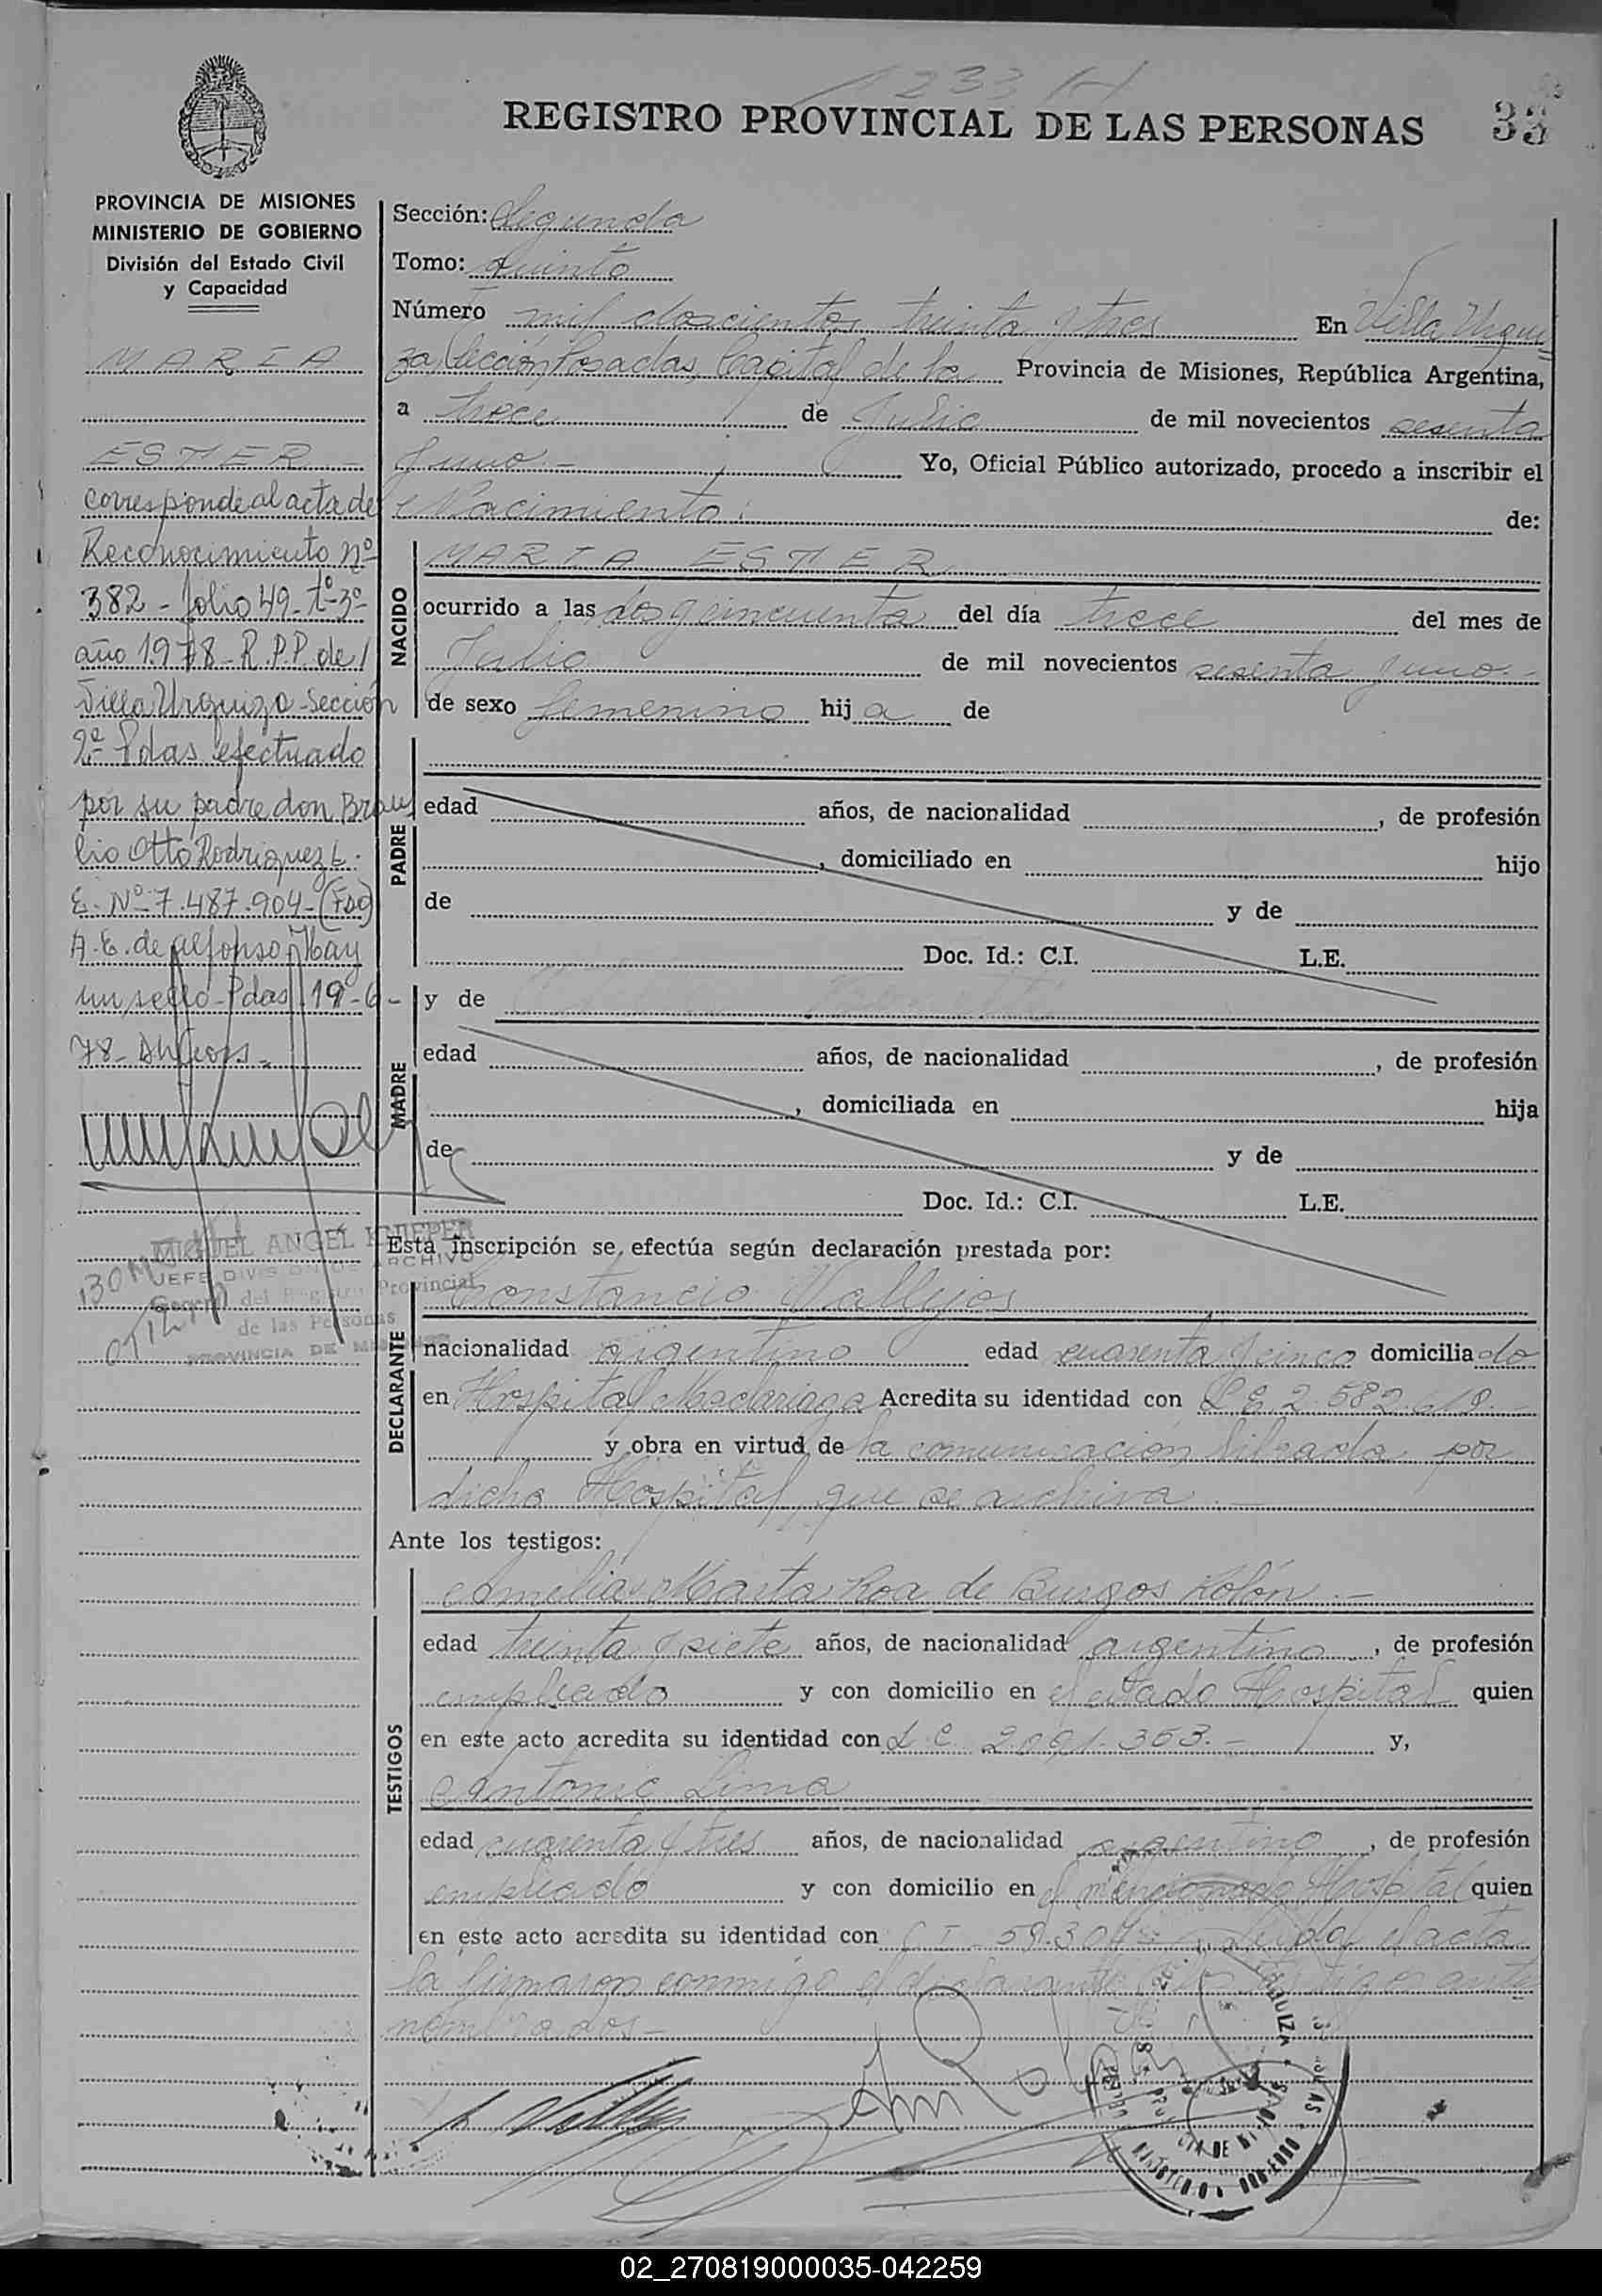 REGISTRO PROVINCIAL DE LAS PERSONAS 33
PROVINCIA DE MISIONES
MINISTERIO DE GOBIERNO
División del Estado Civil
y Capacidad
MARIA
ESTER -
corresponde al acta de
Reconocimiento nº
382 - folio 49 - tº 3º
año 1978 - R.P.P. de
Villa Urquiza - Sección
2ª Pdas efectuado
por su padre don Brau
lio Otto Rodriguez L.
E. Nº 7.487.904 - (Fdo)
A. E. de Alfonso Hay
un sello - Pdas 19 - 6 -
78 -
MIGUEL ANGEL KNIEPER
JEFE DIVISION DE ARCHIVO
General del Registro Provincial
de las Personas
PROVINCIA DE MISIONES
Sección: Segunda
Tomo: Quinto
Número mil doscientos treinta y tres En Villa Urqui=
za Sección Posadas, Capital de la Provincia de Misiones, República Argentina,
a trece de Julio de mil novecientos sesenta
y uno.- Yo, Oficial Público autorizado, procedo a inscribir el
Nacimiento: de:
NACIDO
MARIA ESTER
ocurrido a las dos y cincuenta del día trece del mes de
Julio de mil novecientos sesenta y uno.-
de sexo femenino hija de
PADRE
edad años, de nacionalidad , de profesión
, domiciliado en hijo
de y de
Doc. Id.: C.I. L.E.
MADRE
y de
edad años, de nacionalidad , de profesión
, domiciliada en hija
de y de
Doc. Id.: C.I. L.E.
Esta inscripción se efectúa según declaración prestada por:
DECLARANTE
Constancio Vallejos
nacionalidad argentino edad cuarenta y cinco domiciliado
en Hospital Madariaga Acredita su identidad con L E 2.582.
y obra en virtud de la comunicación librada por
dicho Hospital, que se archiva.-
Ante los testigos:
TESTIGOS
Amelia Marta Roa de Burgos Kolón.-
edad treinta y siete años, de nacionalidad argentino, de profesión
empleado y con domicilio en el citado Hospital quien
en este acto acredita su identidad con L C 2.091.353.- y,
Antonio Lima
edad cuarenta y tres años, de nacionalidad argentino, de profesión
empleado y con domicilio en el mencionado Hospital quien
en este acto acredita su identidad con C I 59.304 Leida el acta
la firmaron conmigo el declarante y los testigos ante
nombrados.-
02_270819000035-042259